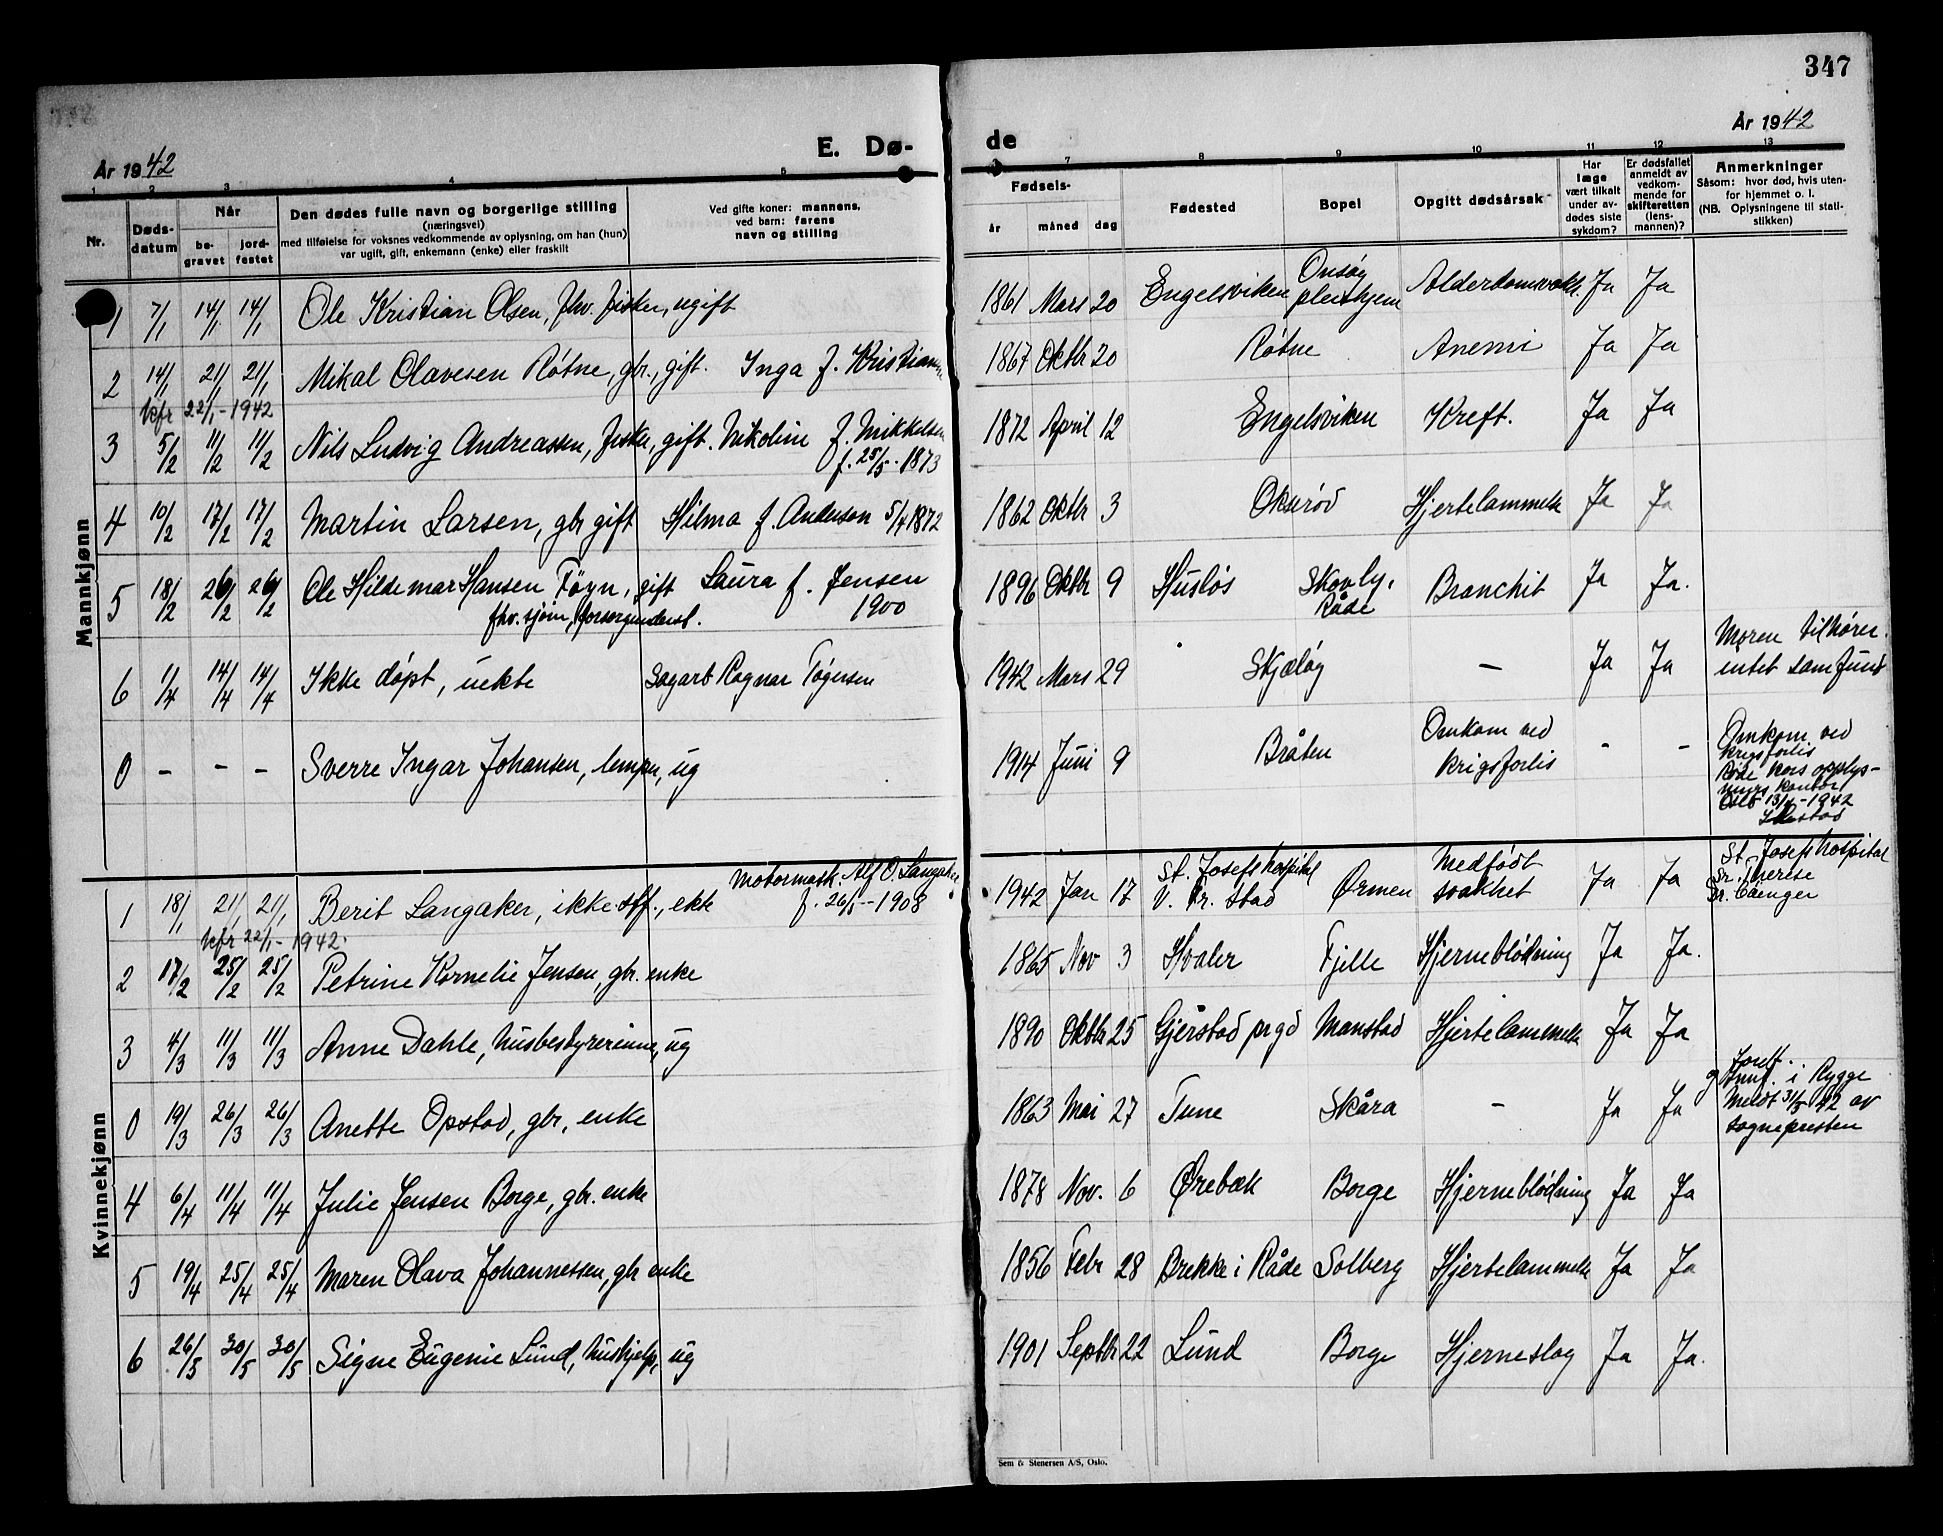 347
År 1942
E. Dø-
de
År 1942
1 2 3 4 5 7 8 9 10 11 12 13
Nr.
Døds-
datum
Når
be-
gravet
jord-
festet
Den dødes fulle navn og borgerlige stilling
(næringsvei)
med tilføielse for voksnes vedkommende av oplysning, om han (hun)
var ugift, gift, enkemann (enke) eller fraskilt
Ved gifte koner: mannens,
ved barn: farens
navn og stilling
Fødsels-
år måned dag
Fødested
Bopel
Opgitt dødsårsak
Har
læge
vært tilkalt
under av-
dødes siste
sykdom?
Er dødsfallet
anmeldt av
vedkom-
mende for
skifteretten
(lens-
mannen)?
Anmerkninger
Såsom: hvor død, hvis uten-
for hjemmet o. l.
(NB. Oplysningene til stati-
stikken)
Mannkjønn
1 7/1 14/1 14/1 Ole Kristian Olsen, fhv. fisker, ugift 1861 Mars 20 Engelsviken Onsøy pleiehjem Alderdomsvakh. Ja Ja
2 14/1 21/1 21/1 Mikal Olavesen Røtne, gbr., gift. Inga f. Kristiansen 1867 Oktbr 20 Røtne Anemi Ja Ja
kfr 22/1 - 1942
3 5/2 11/2 11/2 Nils Ludvig Andreassen, fisker, gift. Nikoline f. Mikkelsen 1872 April 12 Engelsviken Kreft. Ja Ja
f. 25/5 - 1873
4 10/2 17/2 17/2 Martin Larsen, gbr gift Hilma f. Anderson 5/4 1872 1862 Oktbr 3 Okerød Hjertelammelse Ja Ja
5 18/2 26/2 26/2 Ole Hildemar Hansen Föyn, gift Laura f. Jensen 1896 Oktbr 9 Husløs Skovly, Råde Bronchit Ja Ja.
fhv. sjøm, forsorgunderst. 1900
6 1/4 14/4 14/4 Ikke døpt, uekte Sagarb Ragnar Tøgersen 1942 Mars 29 Skjæløy - Ja Ja Moren tilhører
intet samfund
0 - - - Sverre Ingar Johansen, lemper, ug 1914 Juni 9 Bråten Omkom ved krigsforlis - -
Omkom ved
krigsforlis
Røde Kors opplys-
nings kontor
Oslo 13/4 - 1942
Kvinnekjønn
1 18/1 21/1 21/1 Berit Langaker, ikke stf., ekte Motormask. Alf O. Langaker f. 26/1 - 1908 1942 Jan 17 St. Josefs hospital V. Fr. stad Ørmen Medfødt svakhet Ja Ja
St. Josefs hospital
Sr. Therese
kfr 22/1 - 1942.
2 17/2 25/2 25/2 Petrine Kornelie Jensen, gbr. enke 1865 Nov 3 Hvaler Fjelle Hjerneblødning Ja Ja.
3 4/3 11/3 11/3 Anne Dahle, husbestyrerinne, ug 1890 Oktbr 25 Gjerstad prgd Manstad Hjertelammelse Ja Ja
0 19/3 26/3 26/3 Anette Opstad, gbr, enke 1863 Mai 27 Tune Skåra - Ja Ja
Jordf.
i Rygge
Meldt 31/3 42 av
sognepresten
4 6/4 11/4 11/4 Julie Jensen Borge, gbr. enke 1878 Nov. 6 Ørebæk Borge Hjerneblødning Ja Ja
5 19/4 25/4 25/4 Maren Olava Johannessen, gbr enke 1856 Febr 28 Brekke i Råde Solberg Hjertelammelse Ja Ja
6 26/5 30/5 30/5 Signe Eugenie Lund, hushjelp, ug 1901 Septbr 22 Lund Borge Hjerneslag Ja Ja.
Sem & Stenersen A/S, Oslo.